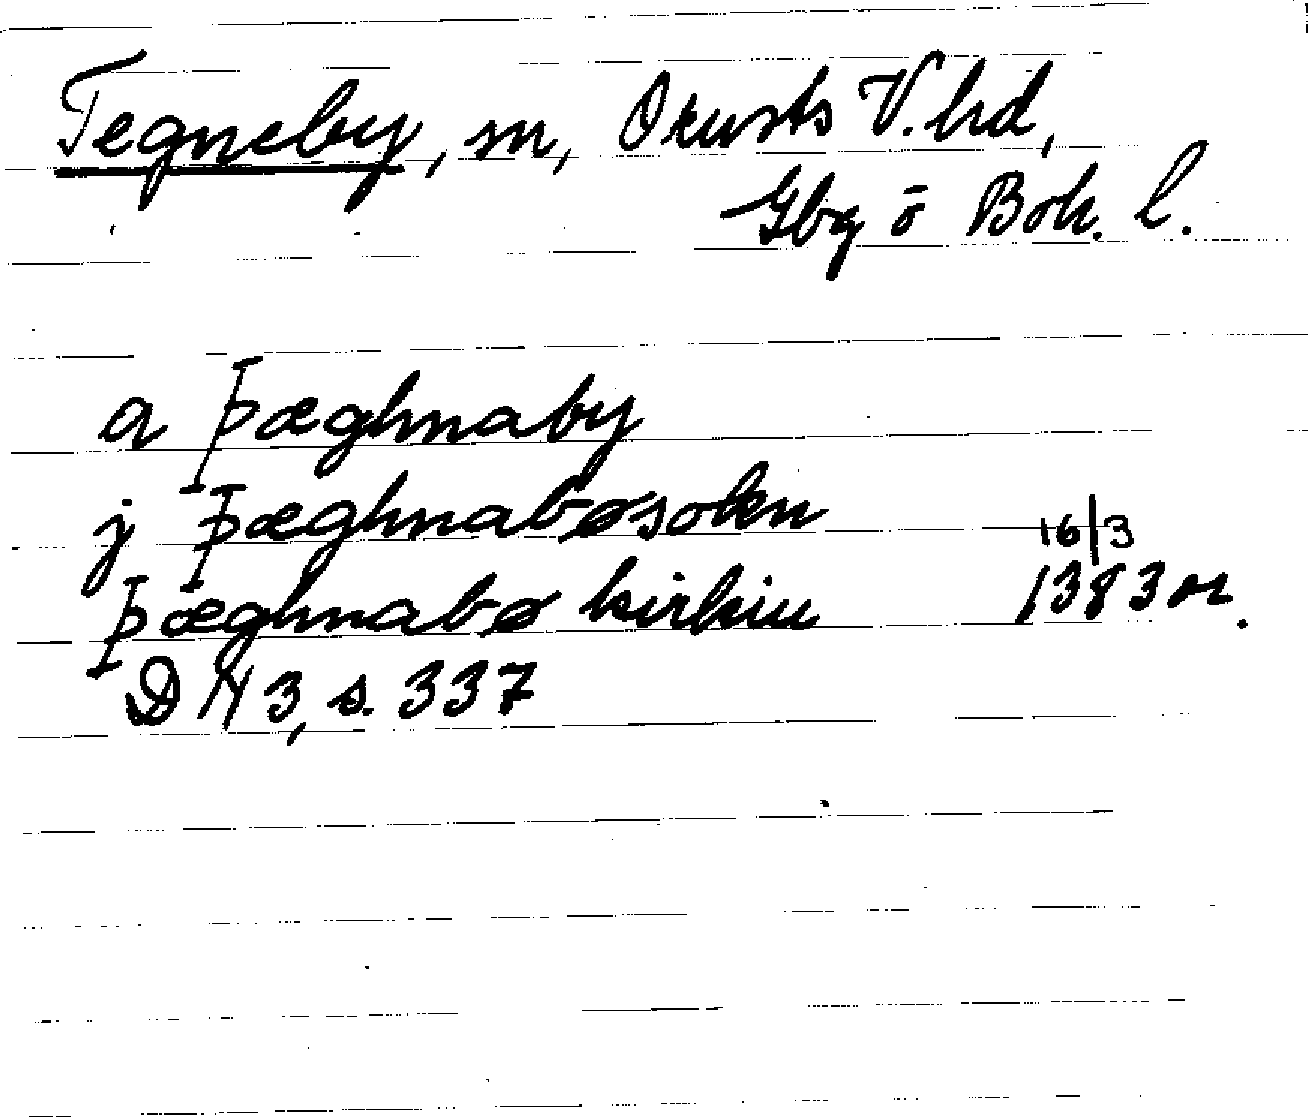 Tegneby, sn, Orusts V. hd,
Gbg o Boh. l.
a þæghnaby
j þæghnabøsokn 16/3
þæghnabø kirkiu 1383 or.
DN 3, s. 337